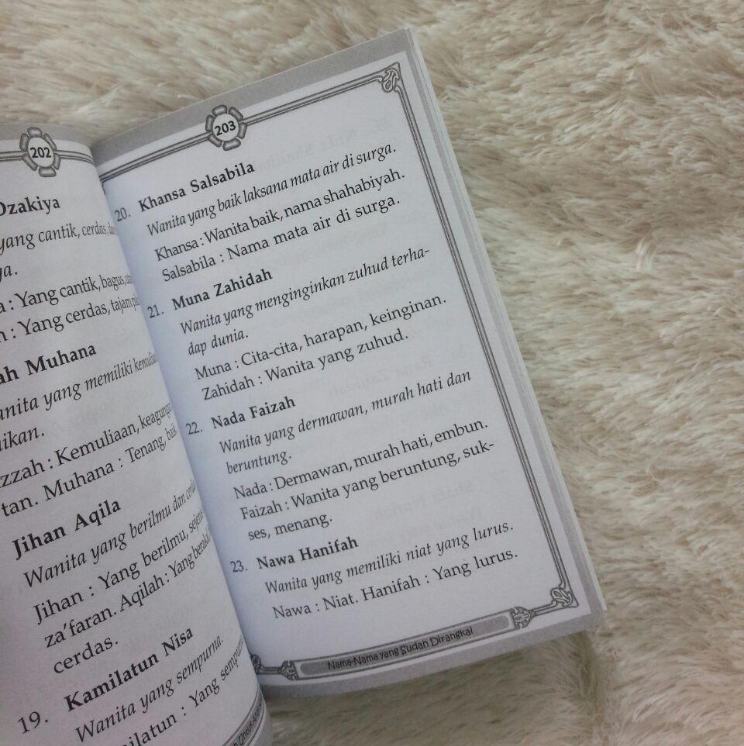 202
Dzakiya
yang cantik, cerdas
ya.
: Yang cantik, bagus
: Yang cerdas, tajam
ah Muhana
anita yang memiliki
ikan.
zzah : Kemuliaan,
tan. Muhana : Tenang,
Jihan Aqila
Wanita yang berilmu dan
Jihan : Yang berilmu,
za'faran. Aqilah : Yang
cerdas.
19. Kamilatun Nisa
Wanita yang sempurna.
ilatun : Yang
203
20. Khansa Salsabila
Wanita yang baik laksana mata air di surga.
Khansa : Wanita baik, nama shahabiyah.
Salsabila : Nama mata air di surga.
21. Muna Zahidah
Wanita yang menginginkan zuhud terha-
dap dunia.
Muna : Cita-cita, harapan, keinginan.
Zahidah : Wanita yang zuhud.
22. Nada Faizah
Wanita yang dermawan, murah hati dan
beruntung.
Nada : Dermawan, murah hati, embun.
Faizah : Wanita yang beruntung, suk-
ses, menang.
23. Nawa Hanifah
Wanita yang memiliki niat yang lurus.
Nawa : Niat. Hanifah : Yang lurus.
Nama-Nama yang Sudah Dirangkai